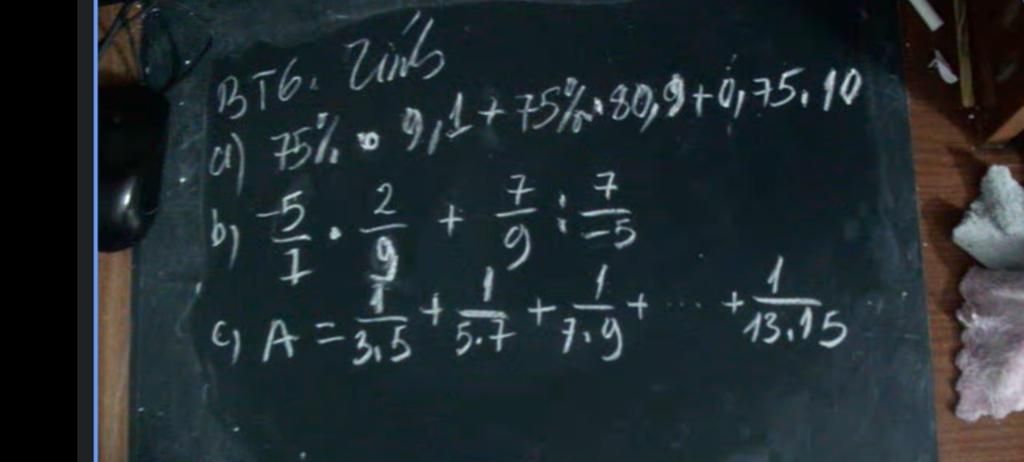 BT6. Tính
a) 75% . 9,1 + 75% . 80,9 + 0,75 . 10
b) -5/7 . 2/9 + 7/9 : 7/-5
c) A = 1/3.5 + 1/5.7 + 1/7.9 + ... + 1/13.15